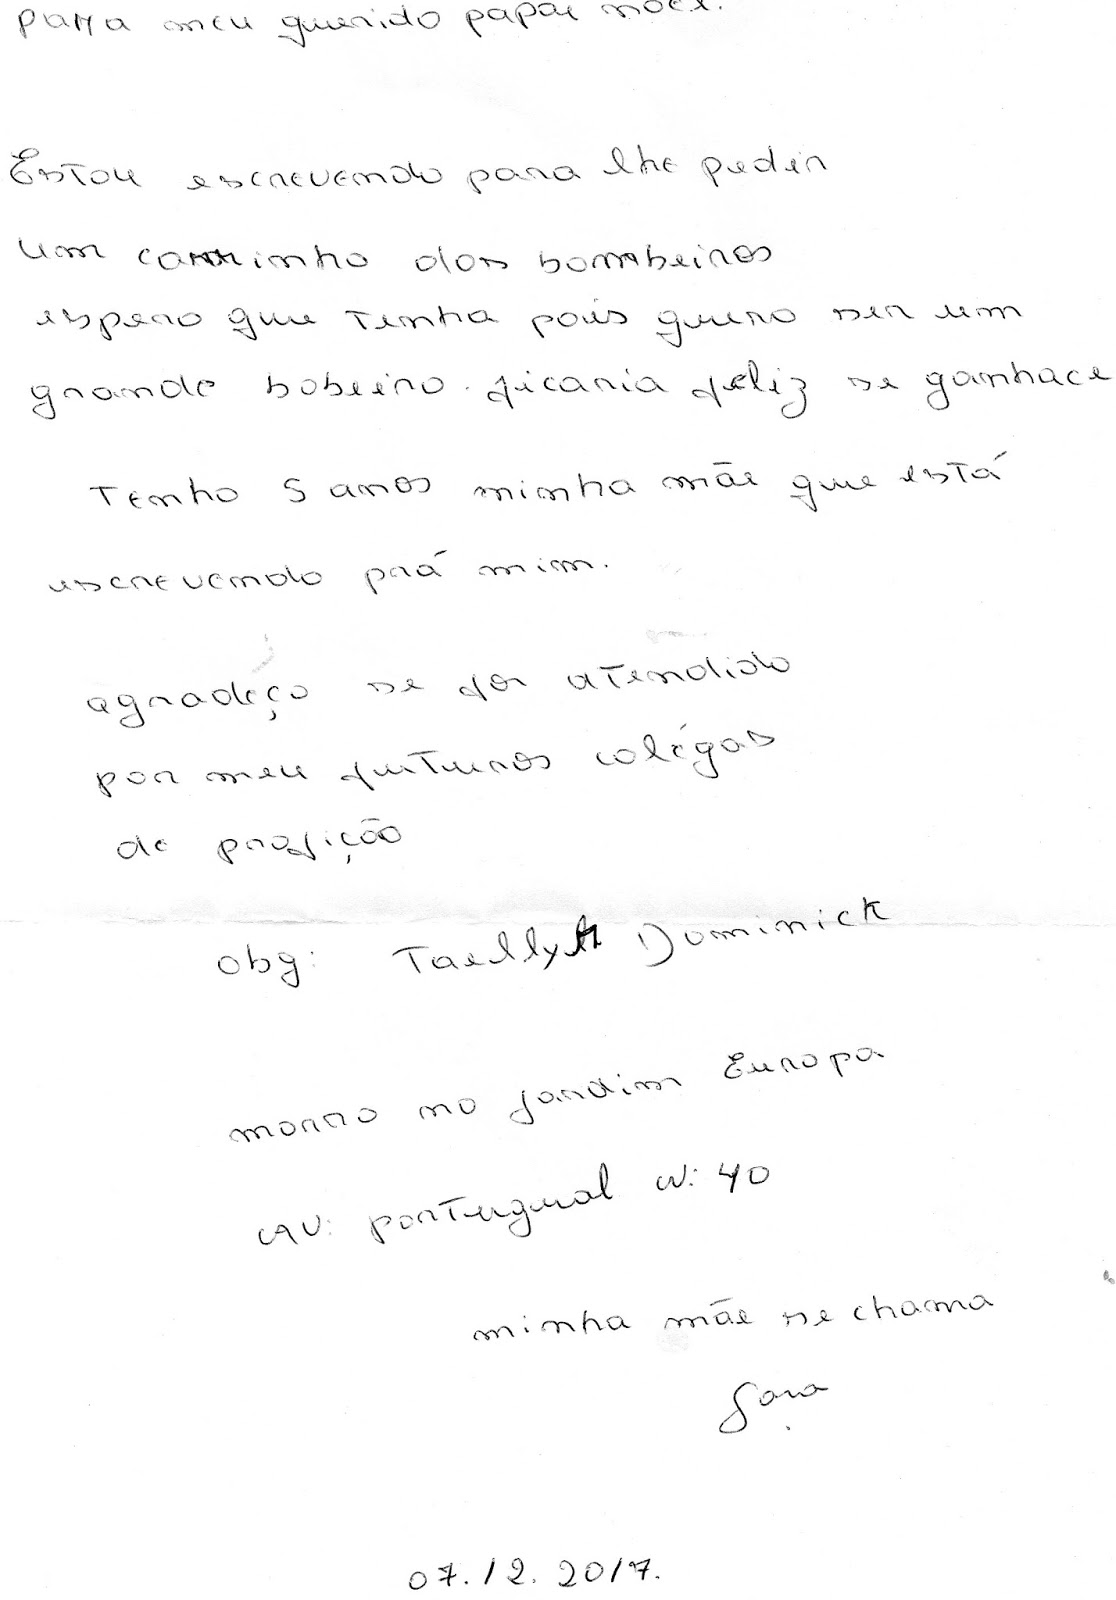 para meu querido papai noel.
Estou escrevendo para lhe pedir
um carrinho dos bombeiros
espero que tenha pois quero ser um
grande bobeiro. ficaria feliz se ganhace
Tenho 5 anos minha mãe que está
escrevendo prá mim.
agradeço se for atendido
por meu futuros colégas
de profição
obg: Taellyk Dominick
morro no jardim Europa
AV: portugual N: 40
minha mãe se chama
Sara
07.12.2017.